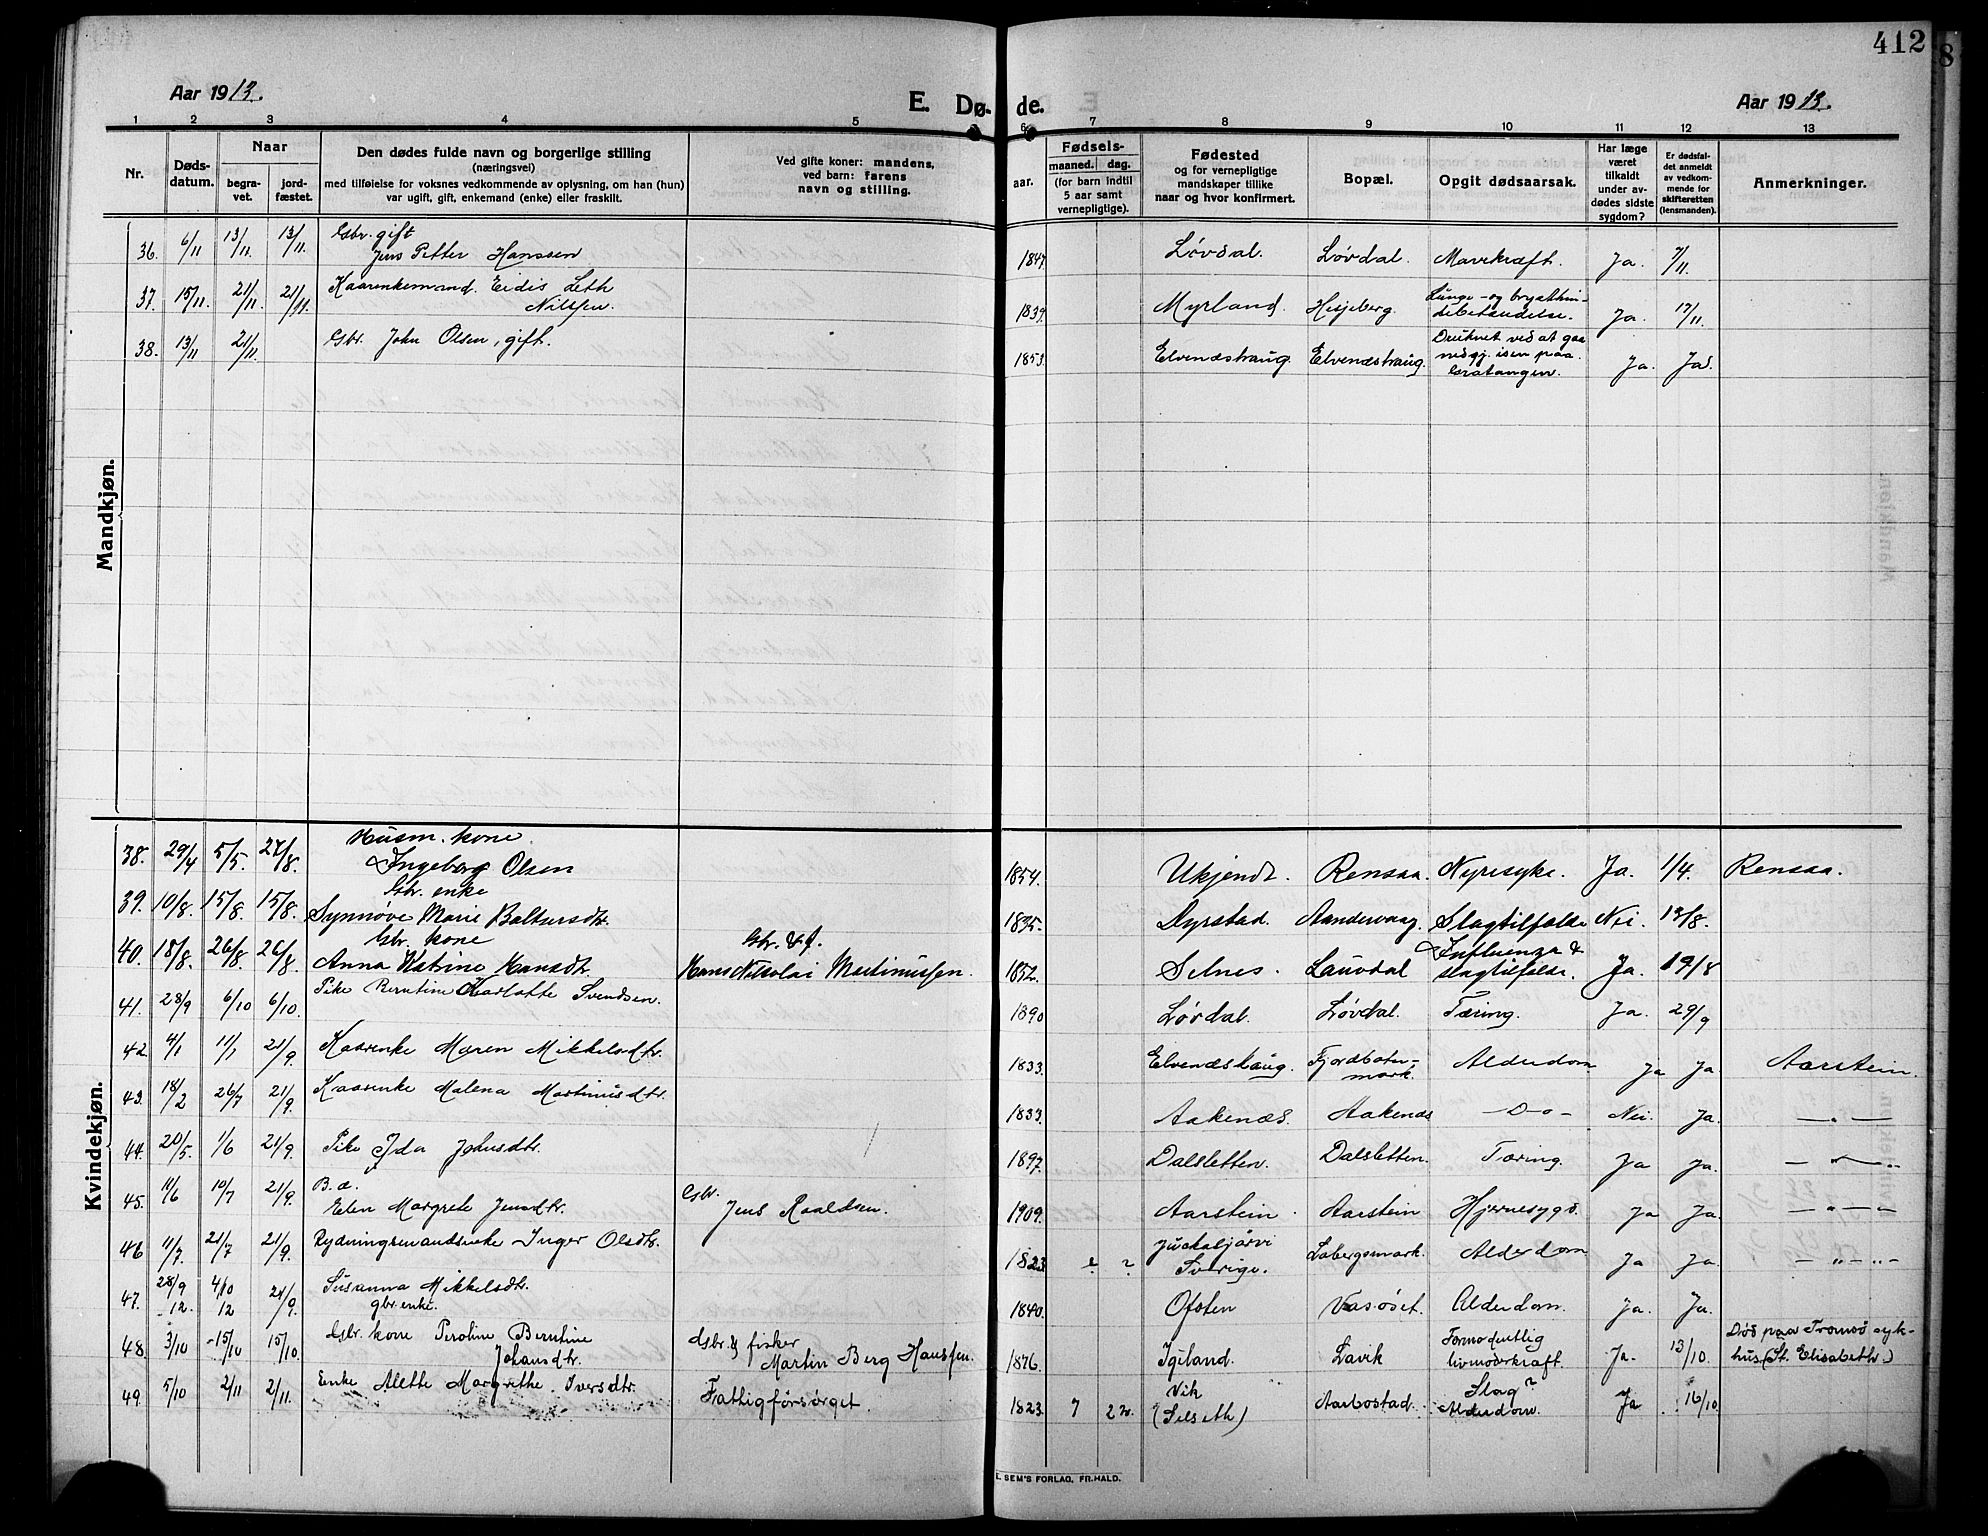 412
Aar 1913.
E. Dø- de.
Aar 1913.
1 2 3 4 5 6 7 8 9 10 11 12 13
Nr.
Døds-
datum.
Naar
begra-
vet.
jord-
fæstet.
Den dødes fulde navn og borgerlige stilling
(næringsvei)
med tilføielse for voksnes vedkommende av oplysning, om han (hun)
var ugift, gift, enkemand (enke) eller fraskilt.
Ved gifte koner: mandens,
ved barn: farens
navn og stilling.
aar.
Fødsels-
maaned. dag.
(for barn indtil
5 aar samt
vernepligtige).
Fødested
og for vernepligtige
mandskaper tillike
naar og hvor konfirmert.
Bopæl.
Opgit dødsaarsak.
Har læge
været
tilkaldt
under av-
dødes sidste
sygdom?
Er dødsfal-
det anmeldt
av vedkom-
mende for
skifteretten
(lensmanden).
Anmerkninger.
Mandkjøn.
Gbr. gift
36. 6/11 13/11. 13/11. Jens Petter Hanssen 1847. Løvdal. Løvdal. Mavekræft. Ja. 7/11.
37. 15/11. 21/11. 21/11. Kaarenkemand. Eidis Leth
Nilssen 1839. Myrland. Hesjeberg. Lunge- og brysthin-
debetændelse. Ja. 17/11.
38. 13/11 21/11. Gbr. John Olsen, gift. 1853. Elvenæs Elvenæs Druknet ved at gaa
nedgj. isen paa
Gratangen. Ja. Ja.
Kvindekjøn.
Husm. kone
38. 29/4 5/5. 27/8. Ingeborg Olsen 1854. Ukjendt. Rensaa. Nyresyke. Ja. 1/4. Rensaa.
Gbr. enke
39. 10/8. 15/8. 15/8. Synnøve Marie Baltsersdtr. 1835. Dyrstad. Aandervaag. Slagtilfælde Nei. 13/8.
Gbr. kone
40. 18/8. 26/8. 26/8. Anna Katrine Hansdtr. Gbr. & f.
Hans Nikolai Martinussen. 1852. Selnes. Lauvdal Influenza &
slagtilfælde. Ja. 19/8
41. 28/9 6/10 6/10. Pike Berntine Charlotte Svendsen. 1890 Løvdal. Løvdal. Tæring. Ja. 29/9
42. 4/1 11/1 21/9. Kaarenke Maren Mikkelsdtr. 1833. Elvenæshaug. Fjordboten-
mark. Alderdom Ja Ja Aarstein.
43. 18/2 26/7 21/9. Kaarenke Malena Martinusdtr. 1833. Aakenæs. Aakenæs - D - o - Nei. Ja. - " -
44. 20/5. 1/6 21/9. Pike Ida Johnsdtr. 1897. Dalsletten. Dalsletten. Tæring. Ja Ja. - " - "
45. 11/6 10/7 21/9. B. a.
Elen Margrete Jensdtr. Gbr.
Jens Roaldsen. 1909. Aarstein. Aarstein Hjernesygd. Ja Ja. - " - " -
46 11/7. 21/7 21/9. Rydningsmandsenke Inger Olsdtr. 1823 ? ? Juckasjärvi
Sverige. Labergsmark. Alderdom Ja Ja. - " - " -
47. 28/9 4/10 21/9. Susanna Mikkelsdtr.
-12. 12 gbr. enke. 1840. Ofoten Vasøset. Alderdom. Ja. Ja.
48. 3/10 -15/10 15/10. Gbr. kone Peroline Berntine
Johansdtr. Gbr. & fisker
Martin Berg Hanssen. 1876. Igeland. Lavik Formodentlig
livmoderkræft. Ja. 13/10. Død paa Tromsø syk-
hus (St. Elisabeth.)
49. 5/10 2/11 2/11. Enke Alette Margrethe Iversdtr. Fattigforsørget. 1823. 7 22. Vik
(Selseth) Aarbostad. Slag?
Alderdom. Ja 16/10.
E. SEM'S FORLAG, FR.HALD.